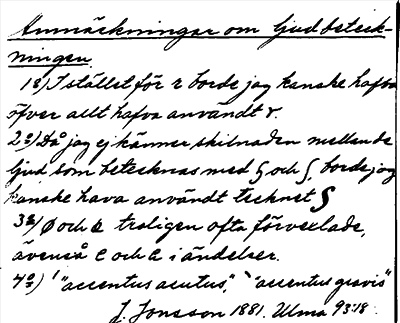 Anmärkningar om ljudbeteck-
ningen.
1o) I stället för r borde jag kanske hafva
öfver allt hafva användt r.
2o) Då jag ej känner skilnaden mellan de
ljud som betecknas med ʃ och ʃ, borde jag
kanske hava användt tecknet ʃ
3o) ø och a troligen ofta förvexlade,
ävenså e och e i ändelser.
4o) ' "accentus acutus", ` "accentus gravis"
J. Jonsson 1881. Ulma 93:18.